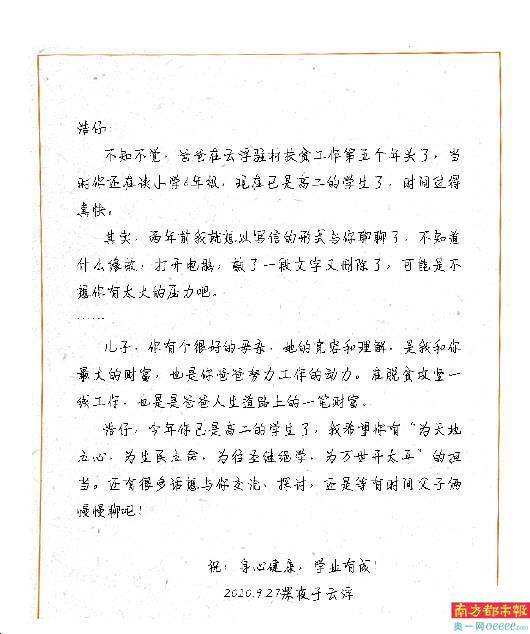 浩仔:
不知不觉，爸爸在云浮驻村扶贫工作第五个年头了，当
时你还在读小学6年级，现在已是高二的学生了，时间过得
真快。
其实，两年前我就想以写信的形式与你聊聊了，不知道
什么缘故，打开电脑，敲了一段文字又删除了，可能是不
想你有太大的压力吧。
……
儿子，你有个很好的母亲，她的宽容和理解，是我和你
最大的财富，也是你爸爸努力工作的动力。在脱贫攻坚一
线工作，也是是爸爸人生道路上的一笔财富。
浩仔，今年你已是高二的学生了，我希望你有“为天地
立心，为生民立命，为往圣继绝学，为万世开太平”的担
当。还有很多话想与你交流、探讨，还是等有时间父子俩
慢慢聊吧!
祝：身心健康，学业有成!
2020.9.27深夜于云浮
南方都市报
奥一网oeeee.com